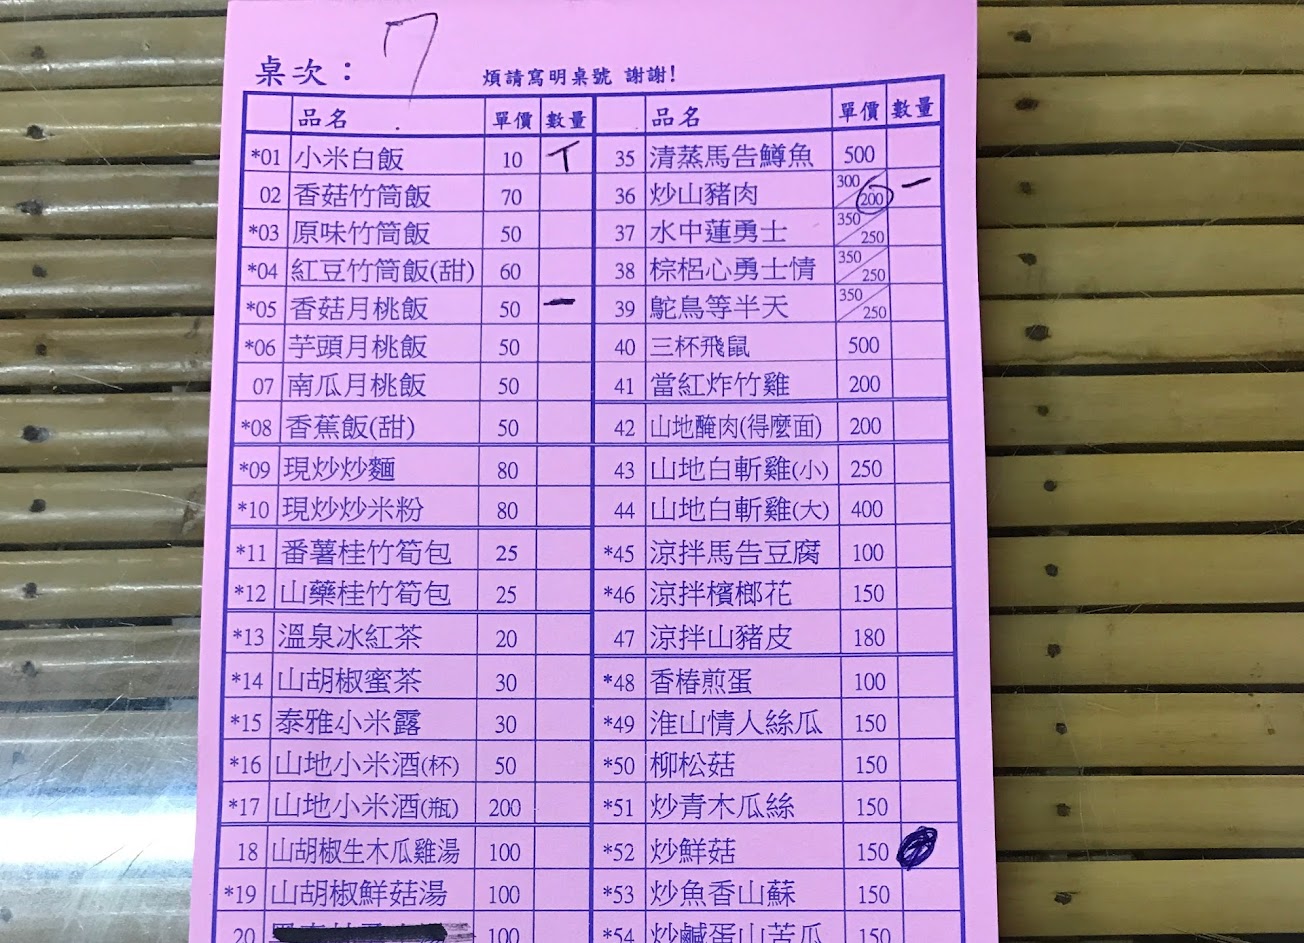 桌次： 7 煩請寫明桌號 謝謝!
品名 單價 數量 品名 單價 數量
*01 小米白飯 10 T 35 清蒸馬告鱒魚 500
02 香菇竹筒飯 70 36 炒山豬肉 300/200 一
*03 原味竹筒飯 50 37 水中蓮勇士 350/250
*04 紅豆竹筒飯(甜) 60 38 棕梠心勇士情 350/250
*05 香菇月桃飯 50 一 39 鴕鳥等半天 350/250
*06 芋頭月桃飯 50 40 三杯飛鼠 500
07 南瓜月桃飯 50 41 當紅炸竹雞 200
*08 香蕉飯(甜) 50 42 山地醃肉(得麼面) 200
*09 現炒炒麵 80 43 山地白斬雞(小) 250
*10 現炒炒米粉 80 44 山地白斬雞(大) 400
*11 番薯桂竹筍包 25 *45 涼拌馬告豆腐 100
*12 山藥桂竹筍包 25 *46 涼拌檳榔花 150
*13 溫泉冰紅茶 20 47 涼拌山豬皮 180
*14 山胡椒蜜茶 30 *48 香椿煎蛋 100
*15 泰雅小米露 30 *49 淮山情人絲瓜 150
*16 山地小米酒(杯) 50 *50 柳松菇 150
*17 山地小米酒(瓶) 200 *51 炒青木瓜絲 150
18 山胡椒生木瓜雞湯 100 *52 炒鮮菇 150
*19 山胡椒鮮菇湯 100 *53 炒魚香山蘇 150
20 100 *54 炒鹹蛋山苦瓜 150